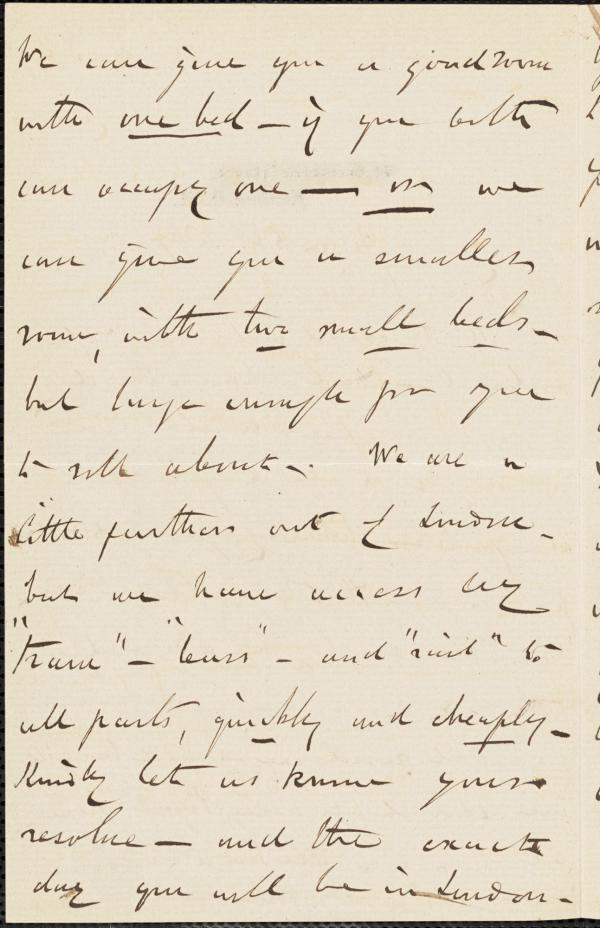 We can give you a good room
with one bed – if you both
can occupy one — or we
can give you a smaller
room, with two small beds –
but large enough for you
to roll about –. We are a
little further out of London –
but we have access by
"tram" – "buss" – and "rail" to
all parts, quickly and cheaply –
Kindly let us know your
resolve – and the exact
day you will be in London –